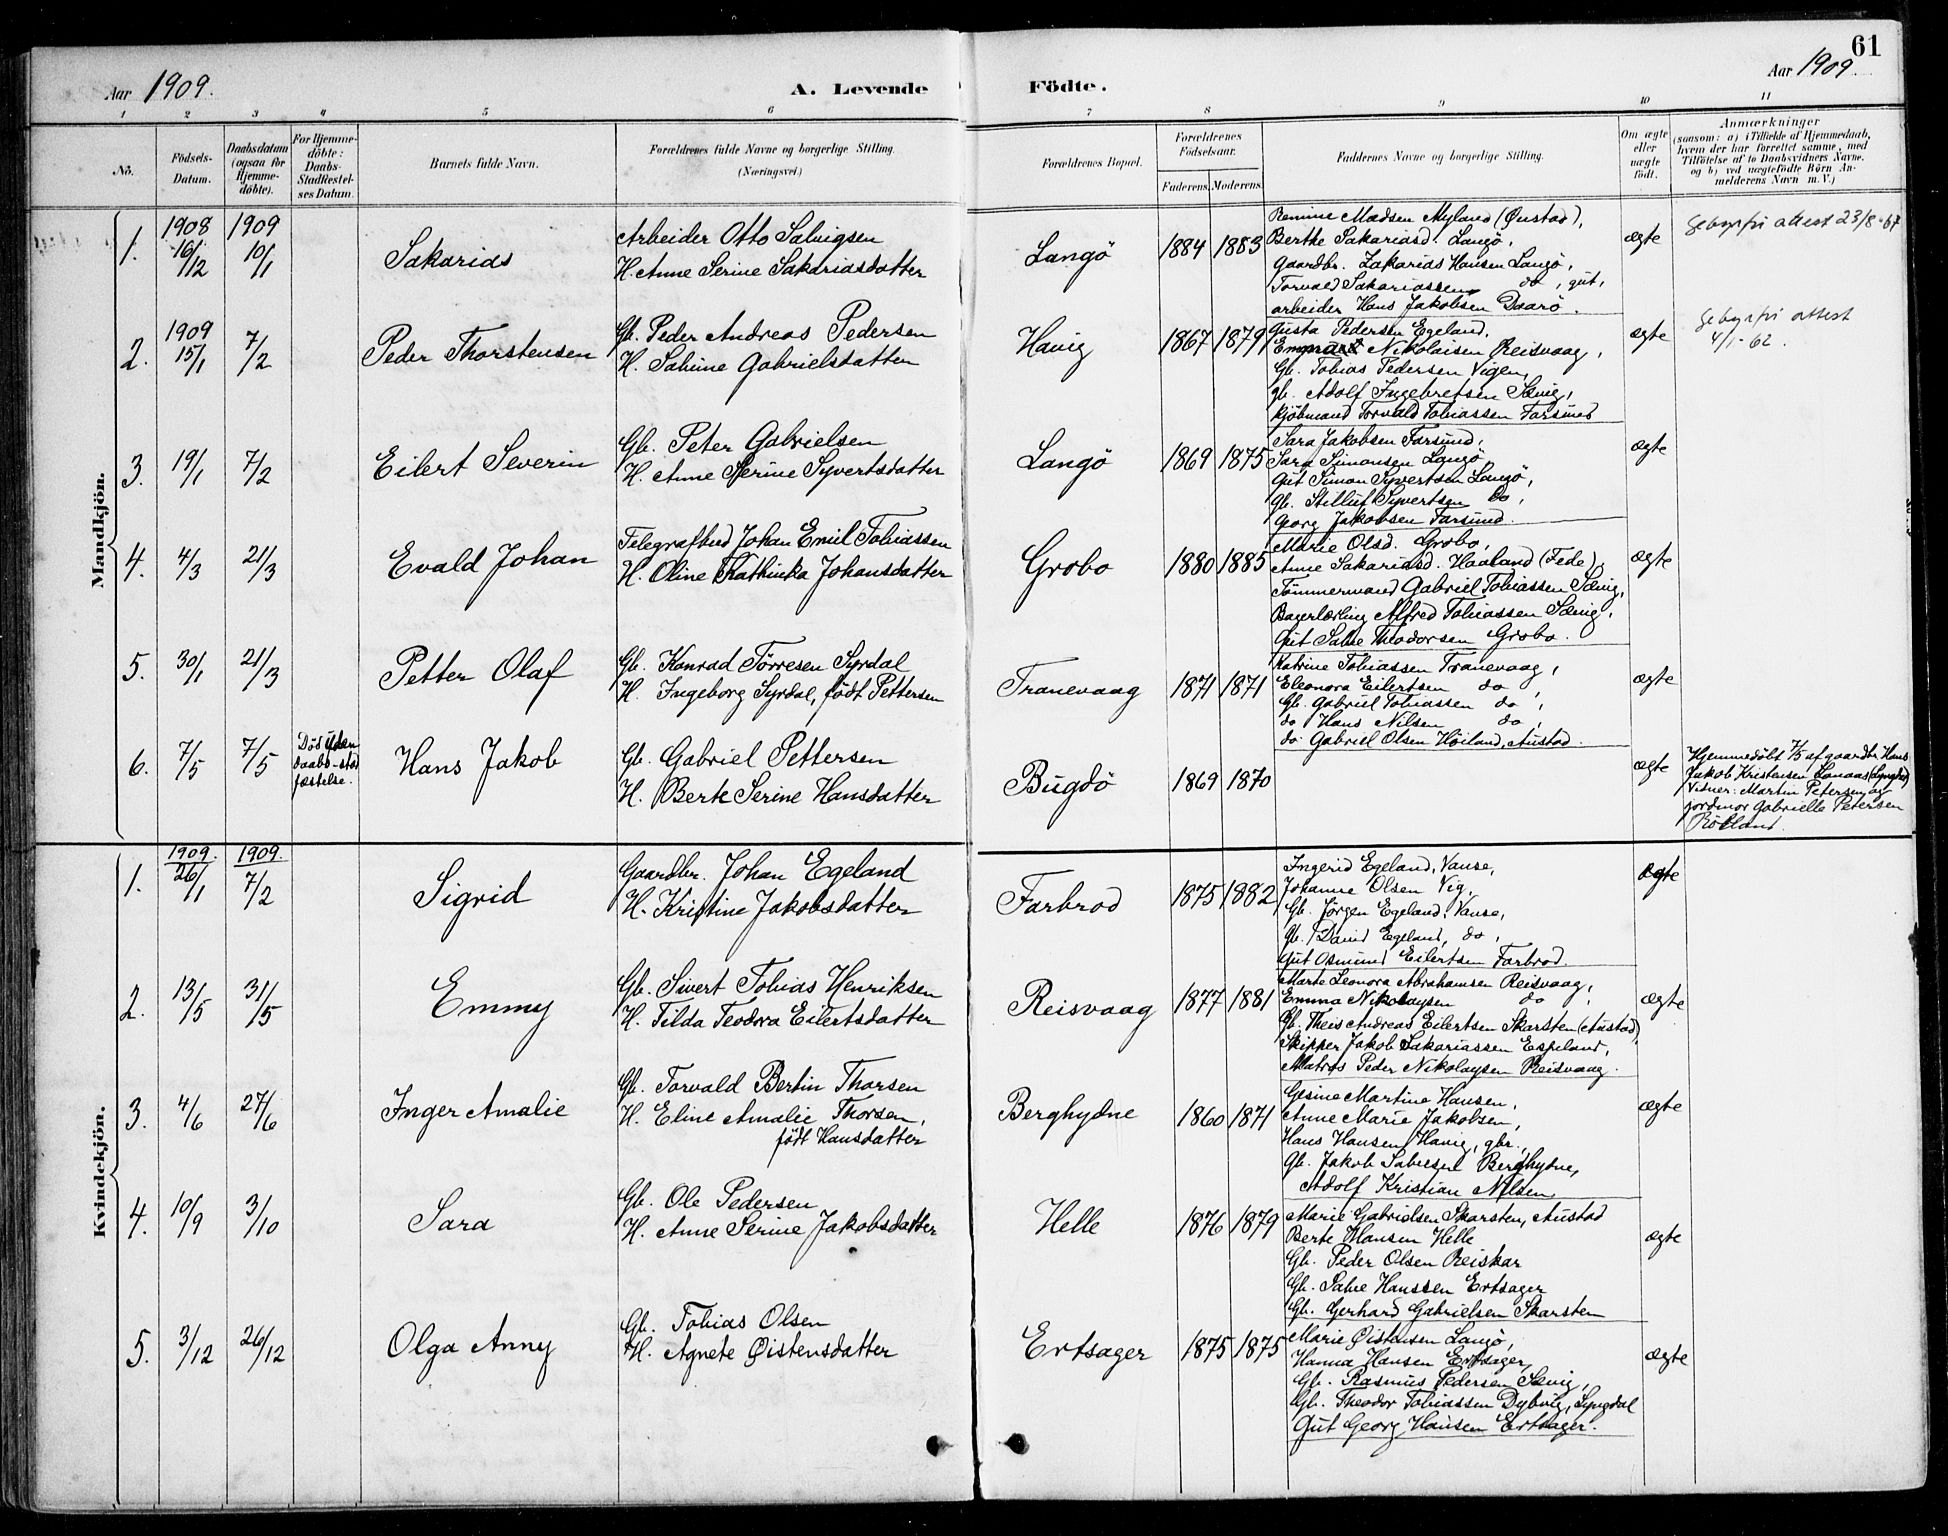 61
Aar 1909.
A. Levende Födte.
Aar 1909.
1 2 3 4 5 6 7 8 9 10 11
No.
Födsels-Datum.
Daabsdatum (ogsaa för Hjemme-döbte).
For Hjemme-döbte: Daabs Stadfæstel-ses Datum.
Barnets fulde Navn.
Forældrenes fulde Navne og borgerlige Stilling.
(Næringsvei.)
Forældrenes Bopæl.
Forældrenes Födselsaar.
Faderens. Moderens.
Faddernes Navne og borgerlige Stilling.
Om ægte eller uægte födt.
Anmærkninger
(saasom: a) i Tilfælde af Hjemmedaab, hvem der har forrettet samme, med Tilföielse af to Daabsvidners Navne, og b) ved uægtefödte Börn An-melderens Navn m. V.)
Mandkjön.
1. 1908 16/12 1909 10/1 Sakarias
Arbeider Otto Salvigsen
H. Anne Serine Sakariasdatter
Langö 1884 1883
Remine Madsen Myland (Öustad),
Berthe Sakariasd. Langö,
Gaardbr. Zakarias Hansen Langö,
Torvald Sakariassen do, gut,
arbeider Hans Jakobsen Daarö.
ægte
Gebyrfri attest 23/8-67
2. 1909 15/1 7/2 Peder Thorstensen
Gb. Peder Andreas Pedersen
H. Sabine Gabrielsdatter
Havig 1867 1879
Gusta Pedersen Egeland,
Nikolaisen Reisvaag,
Gb. Tobias Pedersen Vigen,
gb. Adolf Ingebretsen Sævig,
kjöbmand Torvald Tobiassen Farsund
ægte
Gebyrfri attest
4/1-62.
3. 19/1 7/2 Eilert Severin
Gb. Peter Gabrielsen
H. Anne Serine Syvertsdatter
Langö 1869 1875
Sara Jakobsen Farsund,
Sara Simonsen Langö
Gut Simon Syvertsen Langö,
Gb. Stilluf Syvertsen do,
Georg Jakobsen Farsund.
ægte
4. 4/3 21/3 Evald Johan
Telegrafbud Johan Emil Tobiassen
H. Oline Kathinka Johansdatter
Grobo 1880 1885
Marie Olsd. Grobo,
Anne Sakariasd. Haaland (Fede)
Tömmermand Gabriel Tobiassen Sævig,
Bagerlærling Alfred Tobiassen Sævig,
Gut Salve Theodorsen Grobo.
ægte
5. 30/1 21/3 Petter Olaf
Gb. Konrad Törresen Syrdal
H. Ingeborg Syrdal, födt Pettersen
Tranevaag 1871 1871
Katrine Tobiassen Tranevaag,
Eleonora Eilertsen do,
Gb. Gabriel Tobiassen do,
do Hans Nilsen do,
do Gabriel Olsen Höiland, Austad.
ægte
6. 7/5 7/5 Död uden daabs-stadfæstelse. Hans Jakob
Gb. Gabriel Pettersen
H. Berte Serine Hansdatter
Bugdö 1869 1870
ægte
Hjemmedöbt 7/5 af gaardbr. Hans
Jakob Kristensen (Lyngdal)
Vidner: Martin Petersen og
jordmor Gabrielle Petersen
Kvindekjön.
1. 1909. 26/1 1909. 7/2 Sigrid
Gaardbr. Johan Egeland
H. Kristine Jakobsdatter
Farbrod 1875 1882
Ingerid Egeland, Vanse,
Johanne Olsen Vig,
Gb. Jörgen Egeland, Vanse,
Gb. David Egeland, do,
Gut Osmund Eilertsen Farbrod.
ægte
2. 13/5 31/5 Emmy
Gb. Sivert Tobias Henriksen
H. Tilda Teodora Eilertsdatter
Reisvaag 1877 1881
Marte Leonora Abrahamsen Reisvaag,
Emma Nikolaysen do,
Gb. Theis Andreas Eilertsen Skarsten (Austad),
Skipper Jakob Sakariassen Espeland,
Matros Peder Nikolaysen Reisvaag.
ægte
3. 4/6 27/6 Inger Amalie
Gb. Torvald Bertin Thorsen
H. Eline Amalie Thorsen,
födt Hansdatter
Berghydne 1860 1871
Gesine Martine Hansen,
Anne Marie Jakobsen,
Hans Hansen Havig, gbr.,
Gb. Jakob Salvesen Berghydne,
Adolf Kristian Nilsen,
ægte
4. 10/9 3/10 Sara
Gb. Ole Pedersen
H. Anne Serine Jakobsdatter
Helle 1876 1879
Marie Gabrielsen Skarsten, Austad
Berte Hansen Helle
Gb. Peder Olsen Reiskar
Gb. Salve Hanssen Ertsager
Gb. Gerhard Gabrielsen Skarsten
ægte
5. 3/12 26/12 Olga Anny
Gb. Tobias Olsen
H. Agnete Øistensdatter
Ertsager 1875 1875
Marie Øistensen Langö,
Hanna Hansen Ertsager,
Gb. Rasmus Pedersen Sævig,
Gb. Theodor Tobiassen Dybvig, Lyngdal
Gut Georg Hansen Ertsager.
ægte